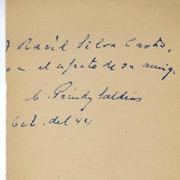 A Raúl Silva Castro,
con el afecto de su amigo
C. Préndez Saldías
Oct. del 44